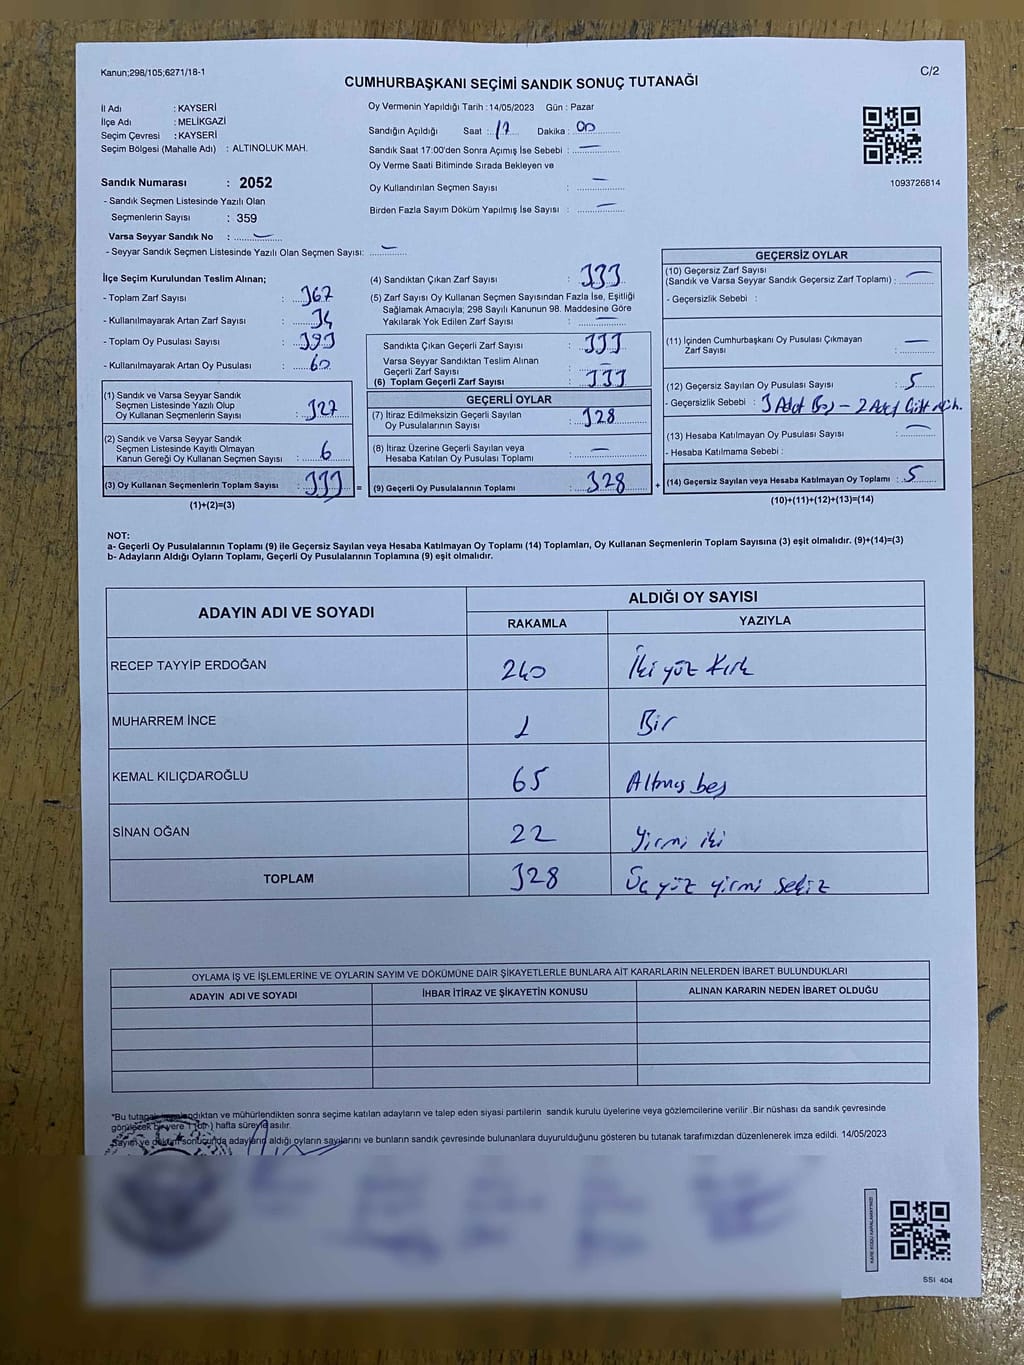 Kanun;298/105;6271/18-1
C/2
CUMHURBAŞKANI SEÇİMİ SANDIK SONUÇ TUTANAĞI
İl Adı : KAYSERİ
İlçe Adı : MELİKGAZİ
Seçim Çevresi : KAYSERİ
Seçim Bölgesi (Mahalle Adı) : ALTINOLUK MAH.
Sandık Numarası : 2052
- Sandık Seçmen Listesinde Yazılı Olan
Seçmenlerin Sayısı : 359
Varsa Seyyar Sandık No : —
- Seyyar Sandık Seçmen Listesinde Yazılı Olan Seçmen Sayısı: —
Oy Vermenin Yapıldığı Tarih : 14/05/2023 Gün : Pazar
Sandığın Açıldığı Saat : 17 Dakika : 00
Sandık Saat 17:00'den Sonra Açımış İse Sebebi : —
Oy Verme Saati Bitiminde Sırada Bekleyen ve
Oy Kullandırılan Seçmen Sayısı : —
Birden Fazla Sayım Döküm Yapılmış İse Sayısı : —
1093726814
İlçe Seçim Kurulundan Teslim Alınan;
- Toplam Zarf Sayısı : 367
- Kullanılmayarak Artan Zarf Sayısı : 34
- Toplam Oy Pusulası Sayısı : 393
- Kullanılmayarak Artan Oy Pusulası : 60
(1) Sandık ve Varsa Seyyar Sandık
Seçmen Listesinde Yazılı Olup
Oy Kullanan Seçmenlerin Sayısı : 327
(2) Sandık ve Varsa Seyyar Sandık
Seçmen Listesinde Kayıtlı Olmayan
Kanun Gereği Oy Kullanan Seçmen Sayısı : 6
(3) Oy Kullanan Seçmenlerin Toplam Sayısı : 333
(1)+(2)=(3)
(4) Sandıktan Çıkan Zarf Sayısı : 333
(5) Zarf Sayısı Oy Kullanan Seçmen Sayısından Fazla İse, Eşitliği
Sağlamak Amacıyla; 298 Sayılı Kanunun 98. Maddesine Göre
Yakılarak Yok Edilen Zarf Sayısı : —
Sandıkta Çıkan Geçerli Zarf Sayısı : 333
Varsa Seyyar Sandıktan Teslim Alınan
Geçerli Zarf Sayısı : —
(6) Toplam Geçerli Zarf Sayısı : 333
GEÇERLİ OYLAR
(7) İtiraz Edilmeksizin Geçerli Sayılan
Oy Pusulalarının Sayısı : 328
(8) İtiraz Üzerine Geçerli Sayılan veya
Hesaba Katılan Oy Pusulası Toplamı : —
= (9) Geçerli Oy Pusulalarının Toplamı : 328
GEÇERSİZ OYLAR
(10) Geçersiz Zarf Sayısı
(Sandık ve Varsa Seyyar Sandık Geçersiz Zarf Toplamı) : —
- Geçersizlik Sebebi :
(11) İçinden Cumhurbaşkanı Oy Pusulası Çıkmayan
Zarf Sayısı : —
(12) Geçersiz Sayılan Oy Pusulası Sayısı : 5
- Geçersizlik Sebebi : 3 Adet Boş – 2 Adet Çift müh.
(13) Hesaba Katılmayan Oy Pusulası Sayısı : —
- Hesaba Katılmama Sebebi :
+ (14) Geçersiz Sayılan veya Hesaba Katılmayan Oy Toplamı : 5
(10)+(11)+(12)+(13)=(14)
NOT:
a- Geçerli Oy Pusulalarının Toplamı (9) ile Geçersiz Sayılan veya Hesaba Katılmayan Oy Toplamı (14) Toplamları, Oy Kullanan Seçmenlerin Toplam Sayısına (3) eşit olmalıdır. (9)+(14)=(3)
b- Adayların Aldığı Oyların Toplamı, Geçerli Oy Pusulalarının Toplamına (9) eşit olmalıdır.
ADAYIN ADI VE SOYADI
ALDIĞI OY SAYISI
RAKAMLA YAZIYLA
RECEP TAYYİP ERDOĞAN 240 İki yüz Kırk
MUHARREM İNCE 1 Bir
KEMAL KILIÇDAROĞLU 65 Altmış beş
SİNAN OĞAN 22 Yirmi iki
TOPLAM 328 Üç yüz yirmi sekiz
OYLAMA İŞ VE İŞLEMLERİNE VE OYLARIN SAYIM VE DÖKÜMÜNE DAİR ŞİKAYETLERLE BUNLARA AİT KARARLARIN NELERDEN İBARET BULUNDUKLARI
ADAYIN ADI VE SOYADI İHBAR İTİRAZ VE ŞİKAYETİN KONUSU ALINAN KARARIN NEDEN İBARET OLDUĞU
*Bu tutanak ve mühürlendikten sonra seçime katılan adayların ve talep eden siyasi partilerin sandık kurulu üyelerine veya gözlemcilerine verilir .Bir nüshası da sandık çevresinde
görülecek bir yere 1 (bir) hafta süreyle asılır.
Sayım ve döküm sonucunda adayların aldığı oyların sayılarını ve bunların sandık çevresinde bulunanlara duyurulduğunu gösteren bu tutanak tarafımızdan düzenlenerek imza edildi. 14/05/2023
KARE KODU KARALAMAYINIZ!
SSI 404